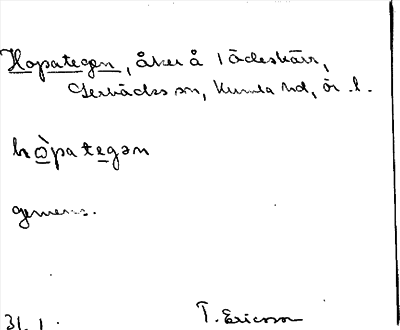 Hopategen, åker å 1 Ödeskärr,
Gerbäcks sn, Kumla hd, Ör. l.
hòpategən
gemens.
31. 1.
T. Ericsson